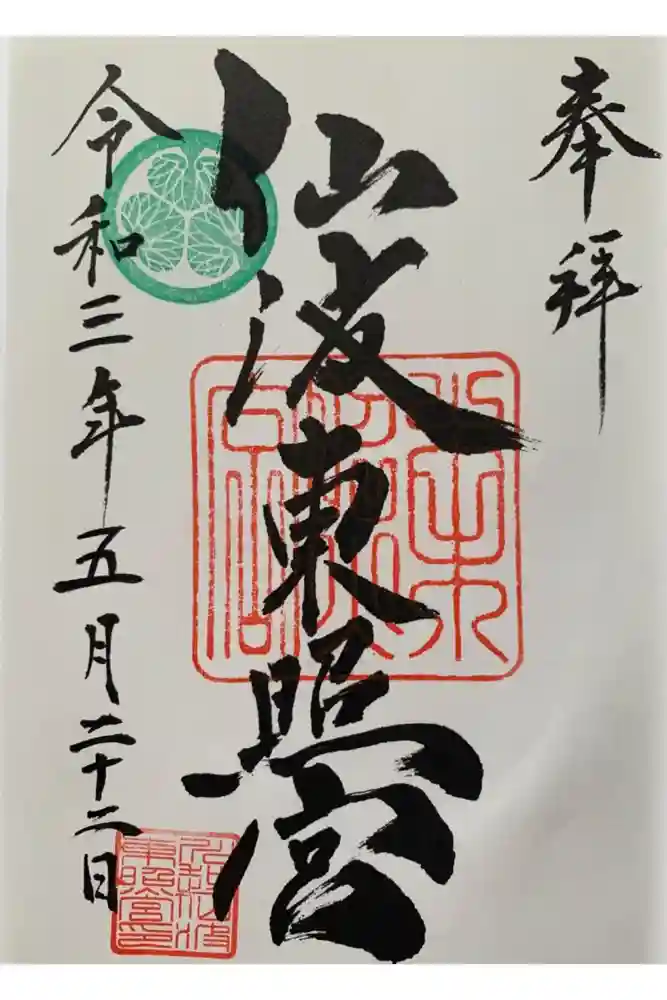 奉拝
仙波東照宮
令和三年五月二十二日